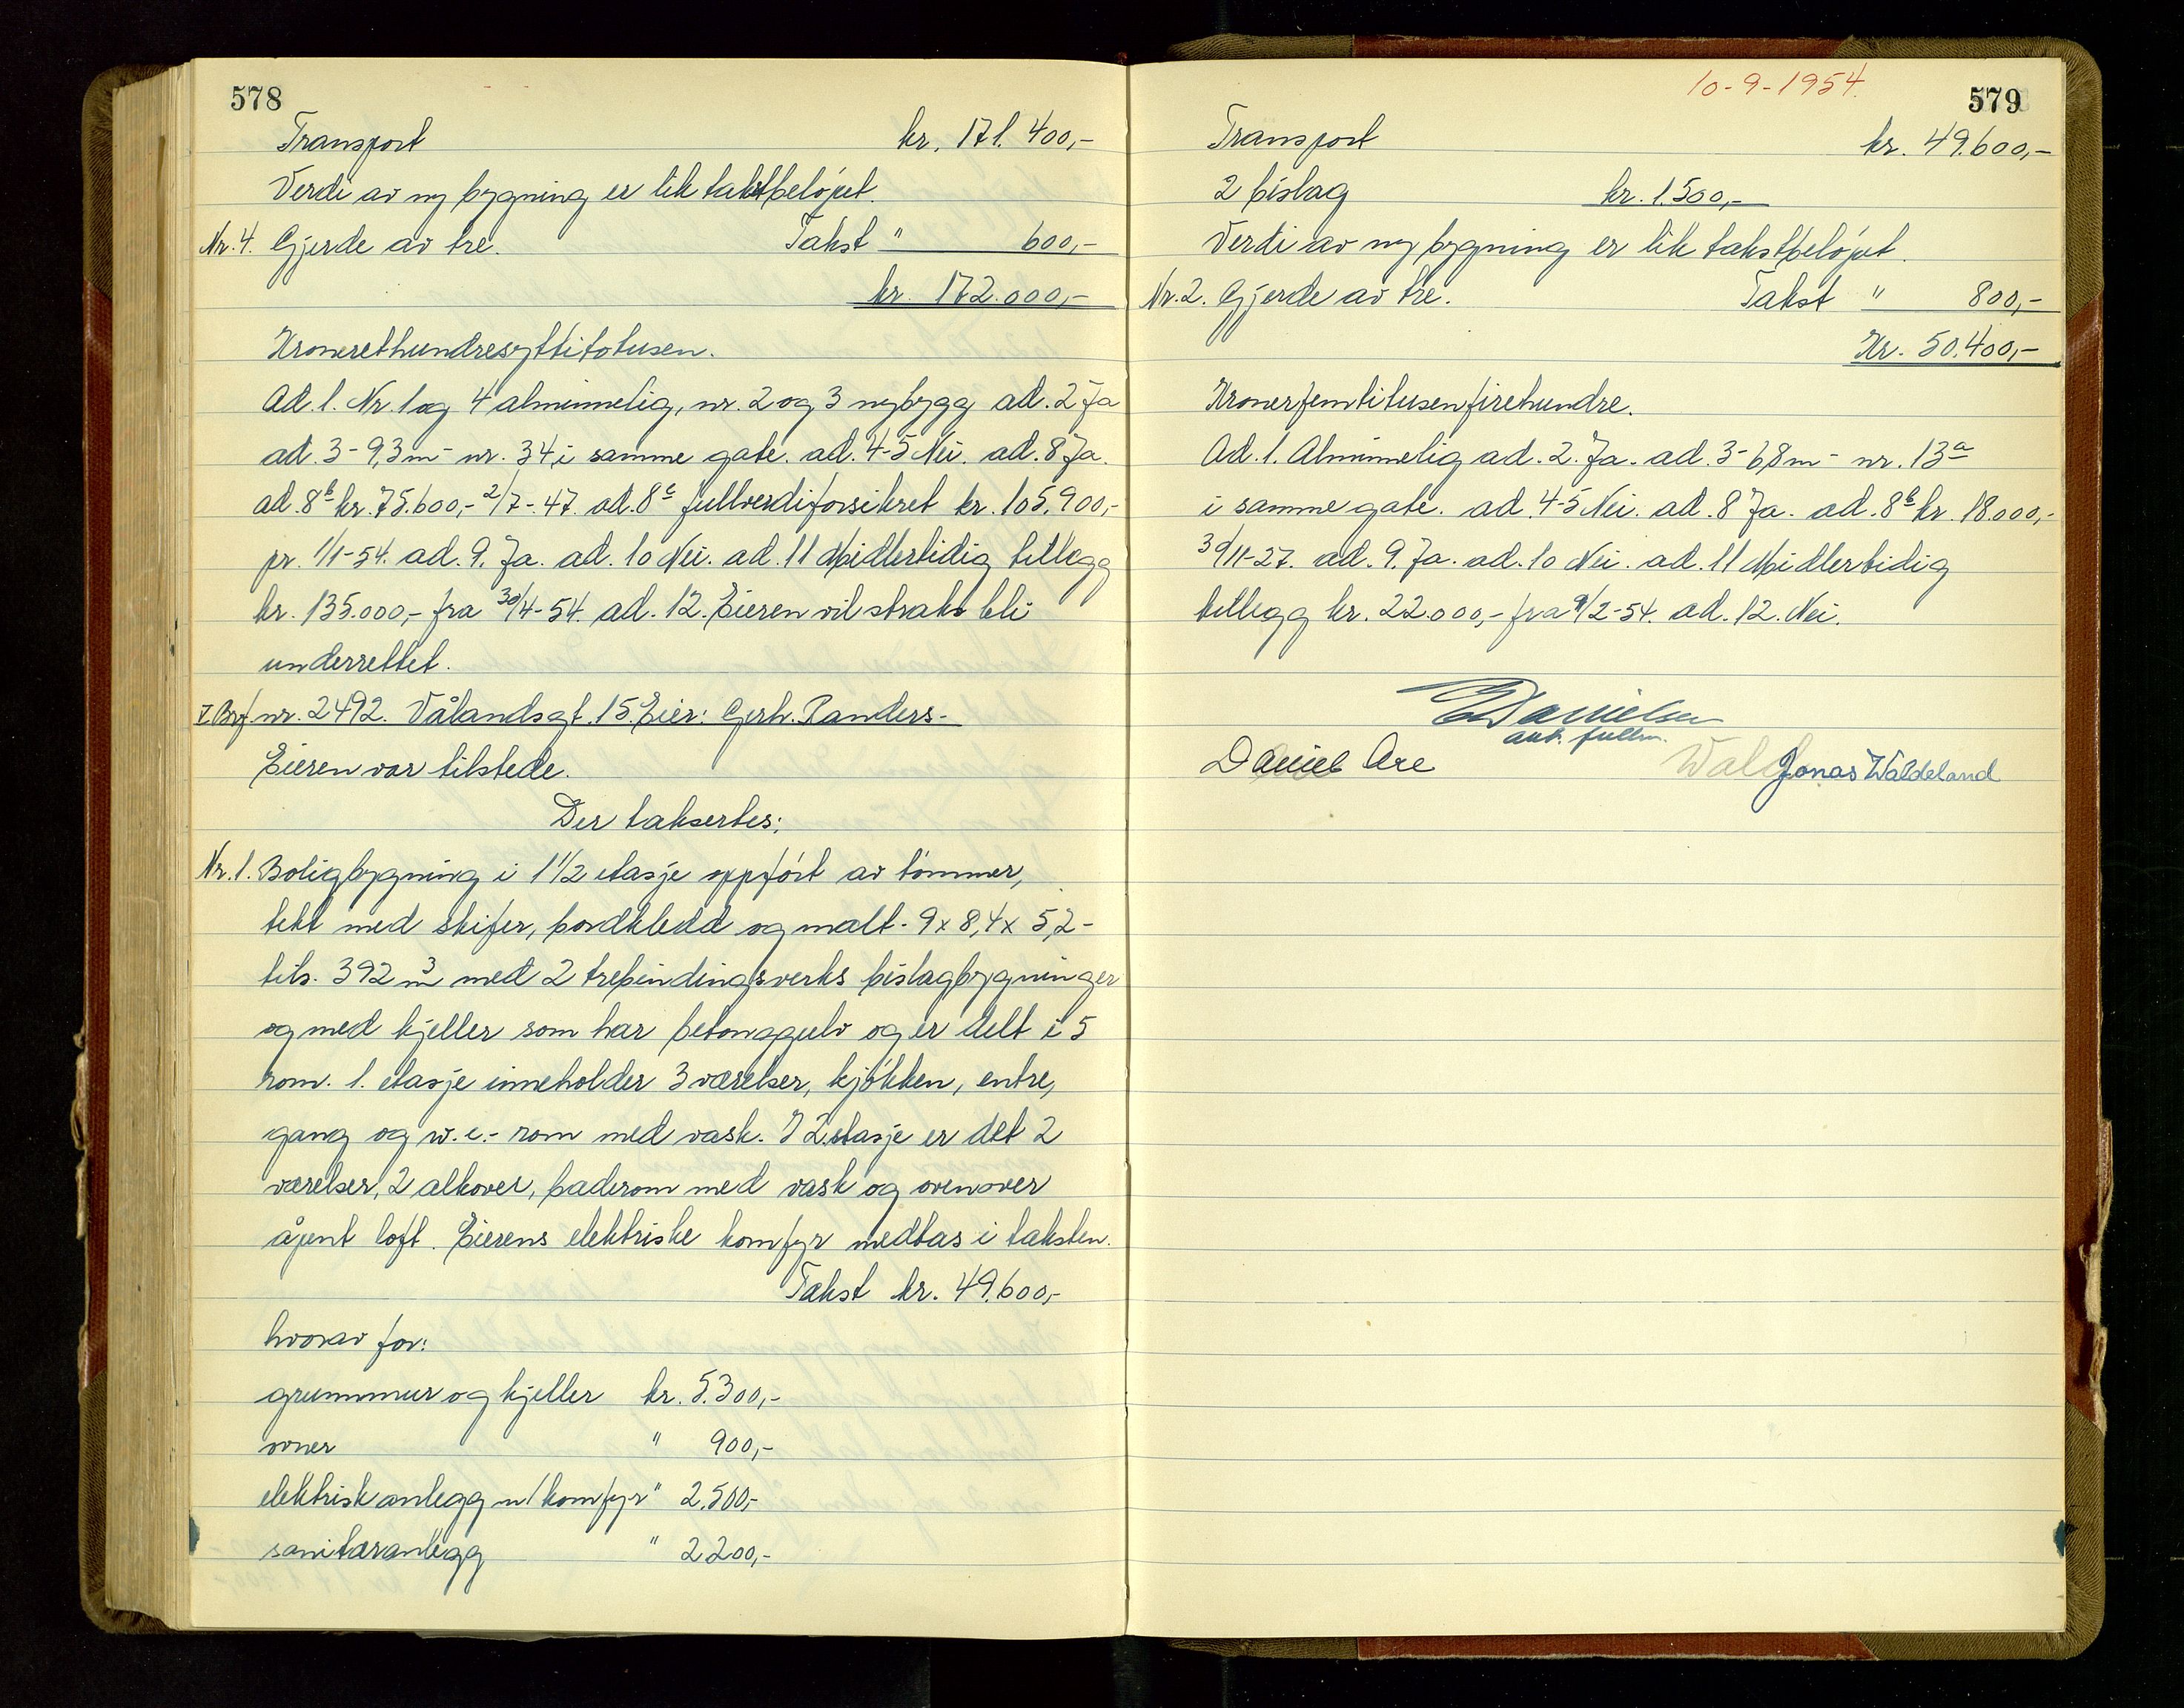 578
Transport kr. 171.400,-
Verdi av ny bygning er lik takstbeløpet.
Nr. 4. Gjerde av tre. Takst " 600,-
kr. 172.000,-
Kronerethundresyttitotusen.
Ad. 1. Nr. 1 og 4 alminnelig, nr. 2 og 3 nybygg ad. 2 Ja
ad. 3 - 9,3 m - nr. 34 i samme gate. ad. 4-5 Nei. ad. 8 Ja.
ad. 8b kr. 75.600,- 2/7-47. ad. 8c fullverdiforsikret kr. 105.900,-
pr. 1/1-54. ad. 9. Ja. ad. 10 Nei. ad. 11 Midlertidig tillegg
kr. 135.000,- fra 30/4-54. ad. 12. Eieren vil straks bli
underrettet.
Brf. nr. 2492. Vålandsgt. 15. Eier: Gerh. Randers.-
Eieren var tilstede.
Der taksertes:
Nr. 1. Boligbygning i 1 1/2 etasje oppført av tømmer,
tekt med skifer, bordkledd og malt - 9 x 8,4 x 5,2 -
tils. 392 m3 med 2 trebindingsverks bislagbygninger
og med kjeller som har betonggulv og er delt i 5
rom. 1. etasje inneholder 3 værelser, kjøkken, entre,
gang og w.c.- rom med vask. I 2. etasje er det 2
værelser, 2 alkover, baderom med vask og ovenover
åpent loft. Eierens elektriske komfyr medtas i taksten.
Takst kr. 49.600,-
hvorav for:
grunnmur og kjeller kr. 5.300,-
ovner " 900,-
elektrisk anlegg m/komfyr " 2.500,-
sanitæranlegg " 2.200,-
10-9-1954.
579
Transport kr. 49.600,-
2 bislag kr. 1.500,-
Verdi av ny bygning er lik takstbeløpet.
Nr. 2. Gjerde av tre. Takst " 800,-
Kr. 50.400,-
Kronerfemtitusenfirehundre.
Ad. 1. Alminnelig ad. 2. Ja. ad. 3 - 6,8 m - nr. 13a
i samme gate. ad. 4-5 Nei. ad. 8 Ja. ad. 8b kr. 18.000,-
30/11-27. ad. 9. Ja. ad. 10 Nei. ad. 11 Midlertidig
tillegg kr. 22.000,- fra 9/2-54. ad. 12. Nei.
Danielsen
aut. fullm.
Daniel Are Wald Jonas Waldeland